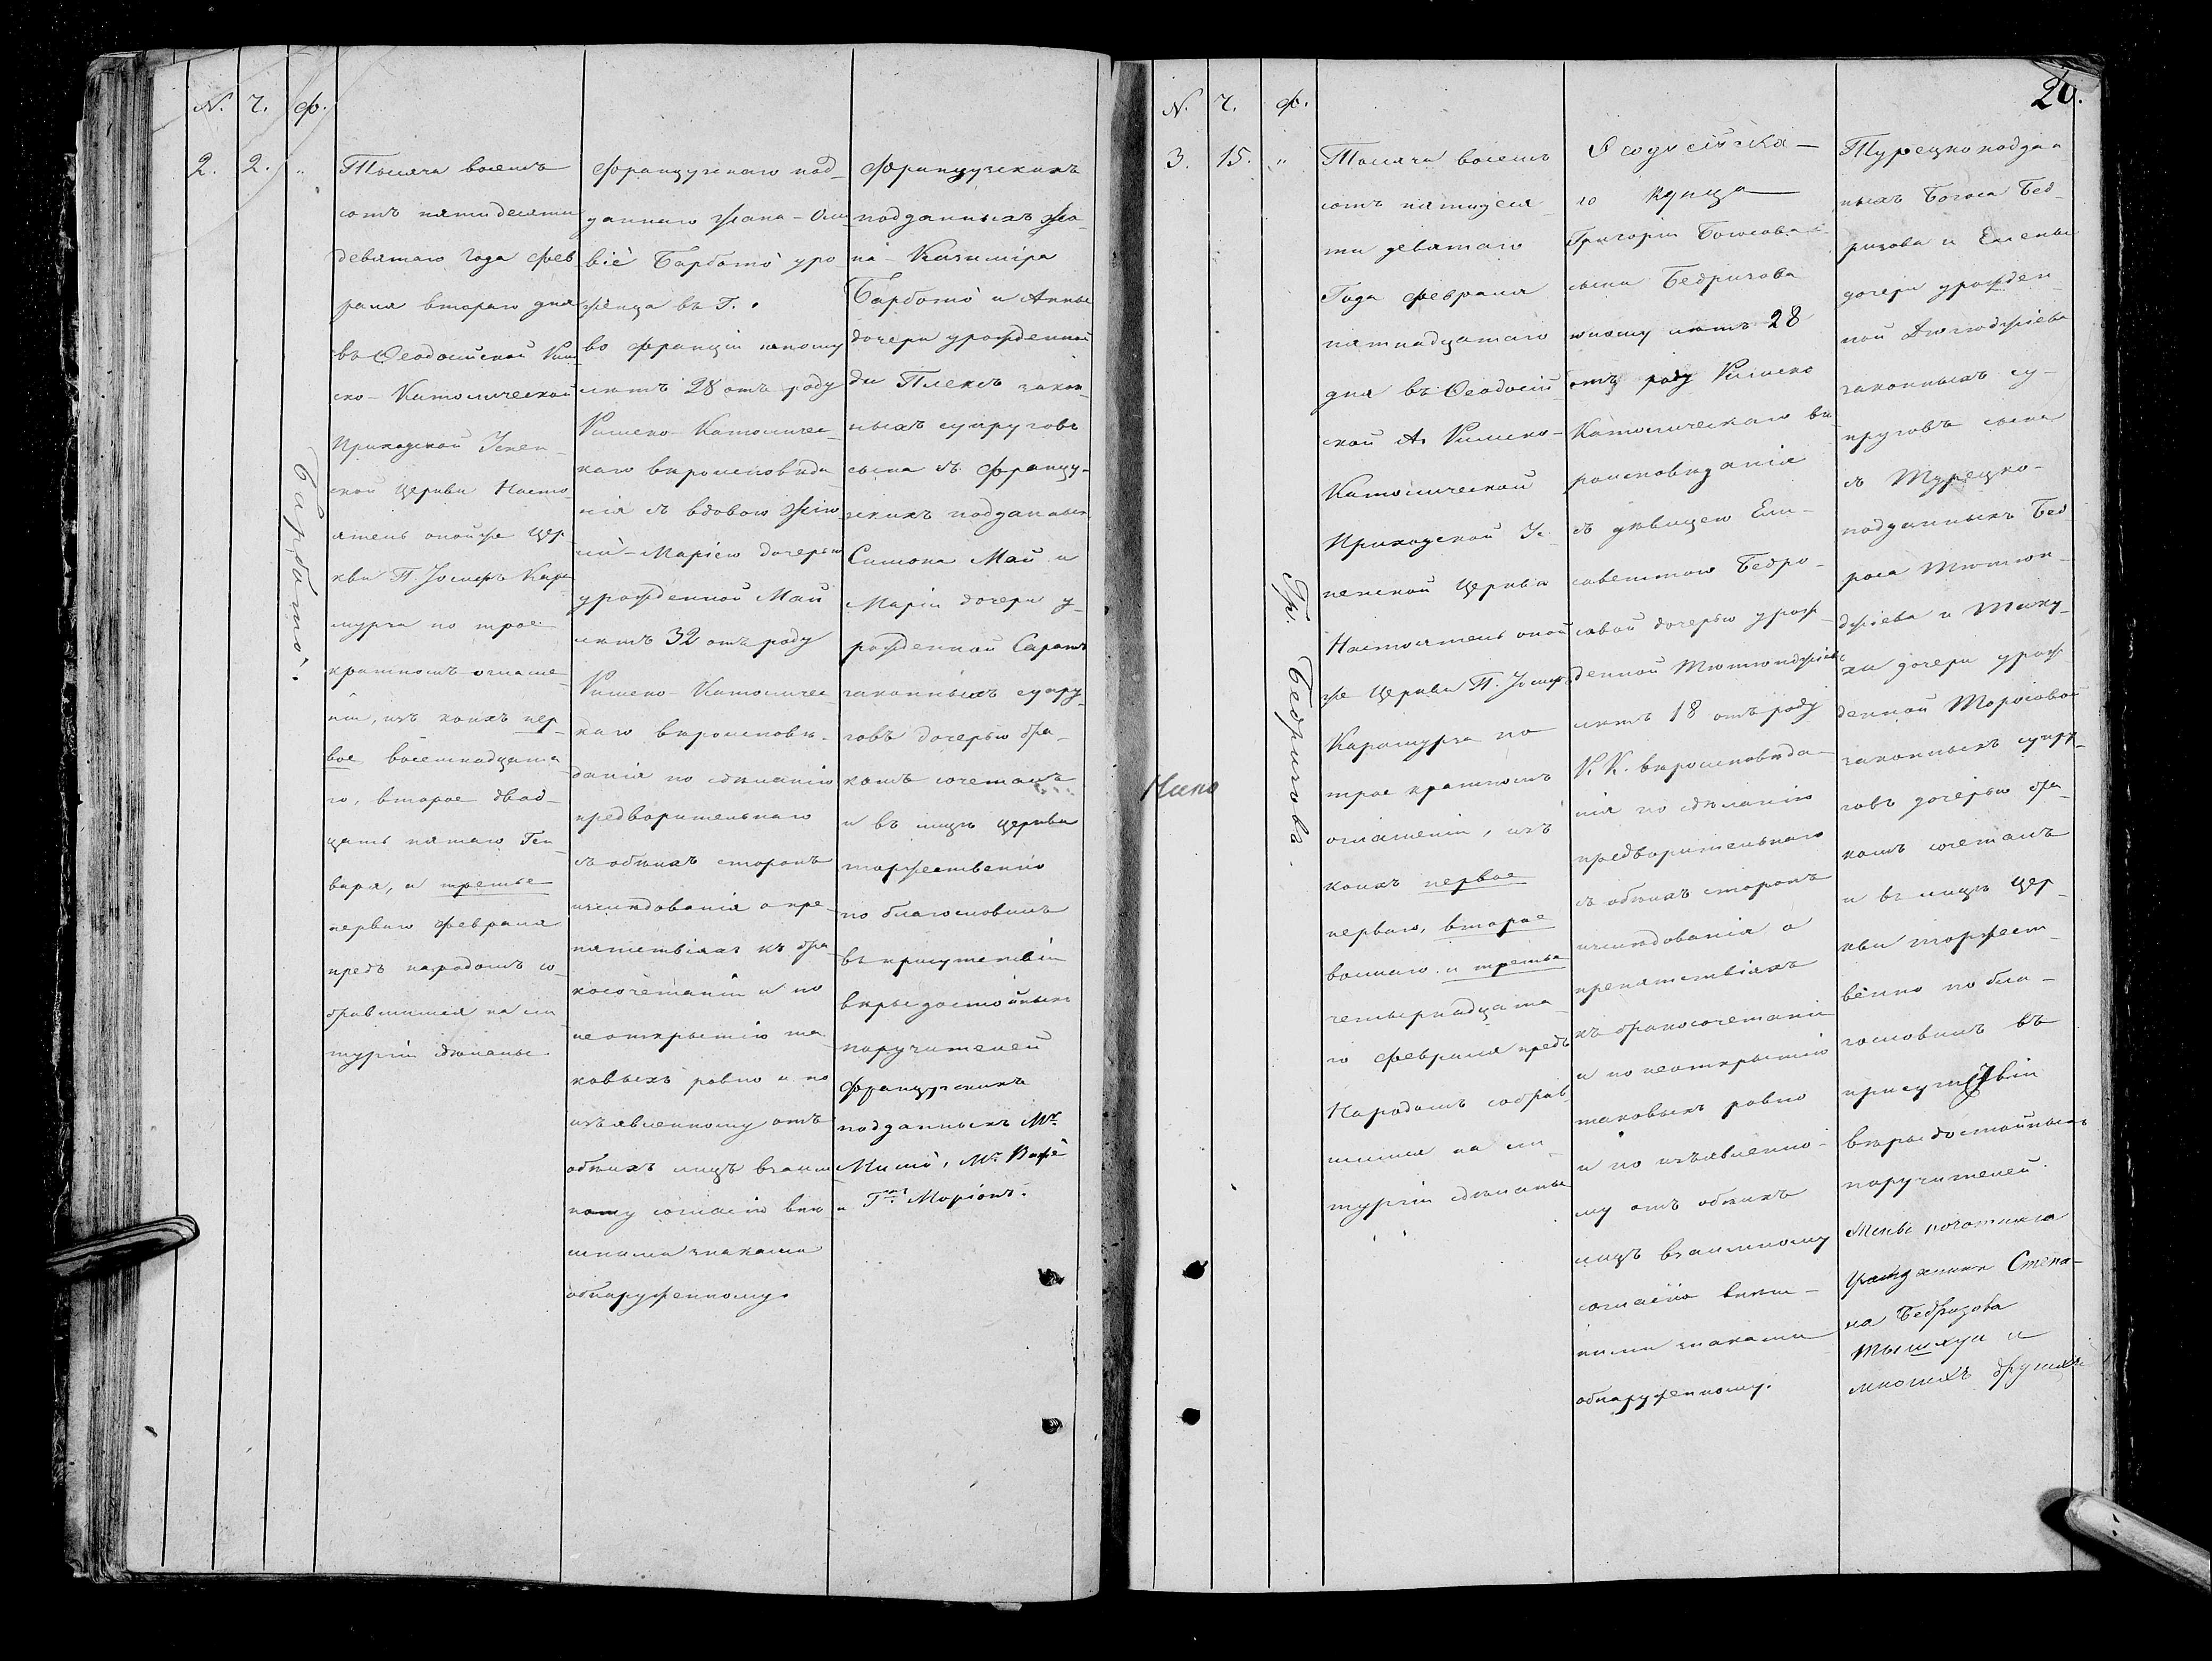 N. Ч. Ф.
2. 2. "
Барбото.
Тысяча восемъ
сотъ пятьдесятъ
девятаго года фев
раля втораго дня
въ Ѳеодосійской Рим
ско-Католической
Приходской Успен-
ской Церкви Насто
ятель оной же Цер
кви П. Іосифъ Кара
мурза по трое
кратномъ оглаше
ніи, изъ коихъ пер-
вое восемнадцата
го, второе двад-
цать пятаго Ген-
варя, и третье
перваго февраля
предъ народомъ со-
бравшимся на ли
тургіи сдѣланы
Французскаго под-
даннаго Жана-Оли
віе Барбото уро
женца въ Г.
во Франціи юношу
лѣтъ 28 отъ роду
Римско-Католичес-
каго вѣроисповѣда
нія съ вдовою
Маріею дочерью
урожденной Май
лѣтъ 32 отъ роду
Римско-Католичес
каго вѣроисповѣ-
данія по сдѣланію
предварительнаго
съ обѣихъ сторонъ
изслѣдованія о пре-
пятствіяхъ къ бра
косочетанію и по
неоткрытію та-
ковыхъ равно и по
изъявленному отъ
обѣихъ лицъ взаим
ному согласію внѣ
шними знаками
обнаруженному.
Французскихъ
подданныхъ Жа-
на-Казиміра
Барбото и Анны
дочери урожденной
ди Плексъ закон
ныхъ супруговъ
сына съ Францу-
зскихъ подданныхъ
Симона Май и
Маріи дочери у-
рожденной Саратъ
законныхъ супру-
говъ дочерью бра-
комъ сочеталъ
и въ лицѣ церкви
торжественно
по благословилъ
въ присутствіи
вѣры достойныхъ
поручителей
Французскихъ
подданныхъ Мr.
Мило, Мr.
и Г-на Маріонъ.
20.
N. Ч. Ф.
3. 15. "
Гр. Бедризовъ.
Тысяча восемъ
сотъ пятидеся
ти девятаго
Года февраля
пятнадцатаго
дня въ Ѳеодосій
ской А. Римско-
Католической
Приходской Ус
пенской Церкви
Настоятель оной
же Церкви П. Іосифъ
Карамурза по
трое кратномъ
оглашеніи, изъ
коихъ первое
перваго, второе
восмаго и третье
четырнадцата
го февраля предъ
Народомъ собрав
шимся на ли
тургіи сдѣланы
Ѳеодосійска-
го купца
Григорія Богосова
сына Бедризова
юношу лѣтъ 28
отъ роду Римско
Католическаго вѣ
роисповѣданія
съ дѣвицею Ели-
саветтою Бедро-
совой дочерью урож-
денной Тютюнджіевой
лѣтъ 18 отъ роду
Р. К. вѣроисповѣда
нія по сдѣланію
предварительнаго
съ обѣихъ сторонъ
изслѣдованія о
препятствіяхъ
къ бракосочетанію
и по неоткрытію
таковыхъ равно
и по изъявленно-
му отъ обѣихъ
лицъ взаимному
согласію внѣш-
ними знаками
обнаруженному.
Турецкоподдан
ныхъ Богоса Бед-
ризова и Елены
дочери урожден-
ной
законныхъ су-
пруговъ сына
съ Турецко-
подданныхъ Бед
роса Тютюн-
джіева и
дочери урож-
денной Торосовой
законныхъ супру-
говъ дочерью бра-
комъ сочеталъ
и въ лицѣ Цер-
кви торжест-
венно по бла-
гословилъ въ
присутствіи
вѣры достойныхъ
поручителей
почотнаго
гражданина Степа-
на Бедризова
и
многихъ другихъ